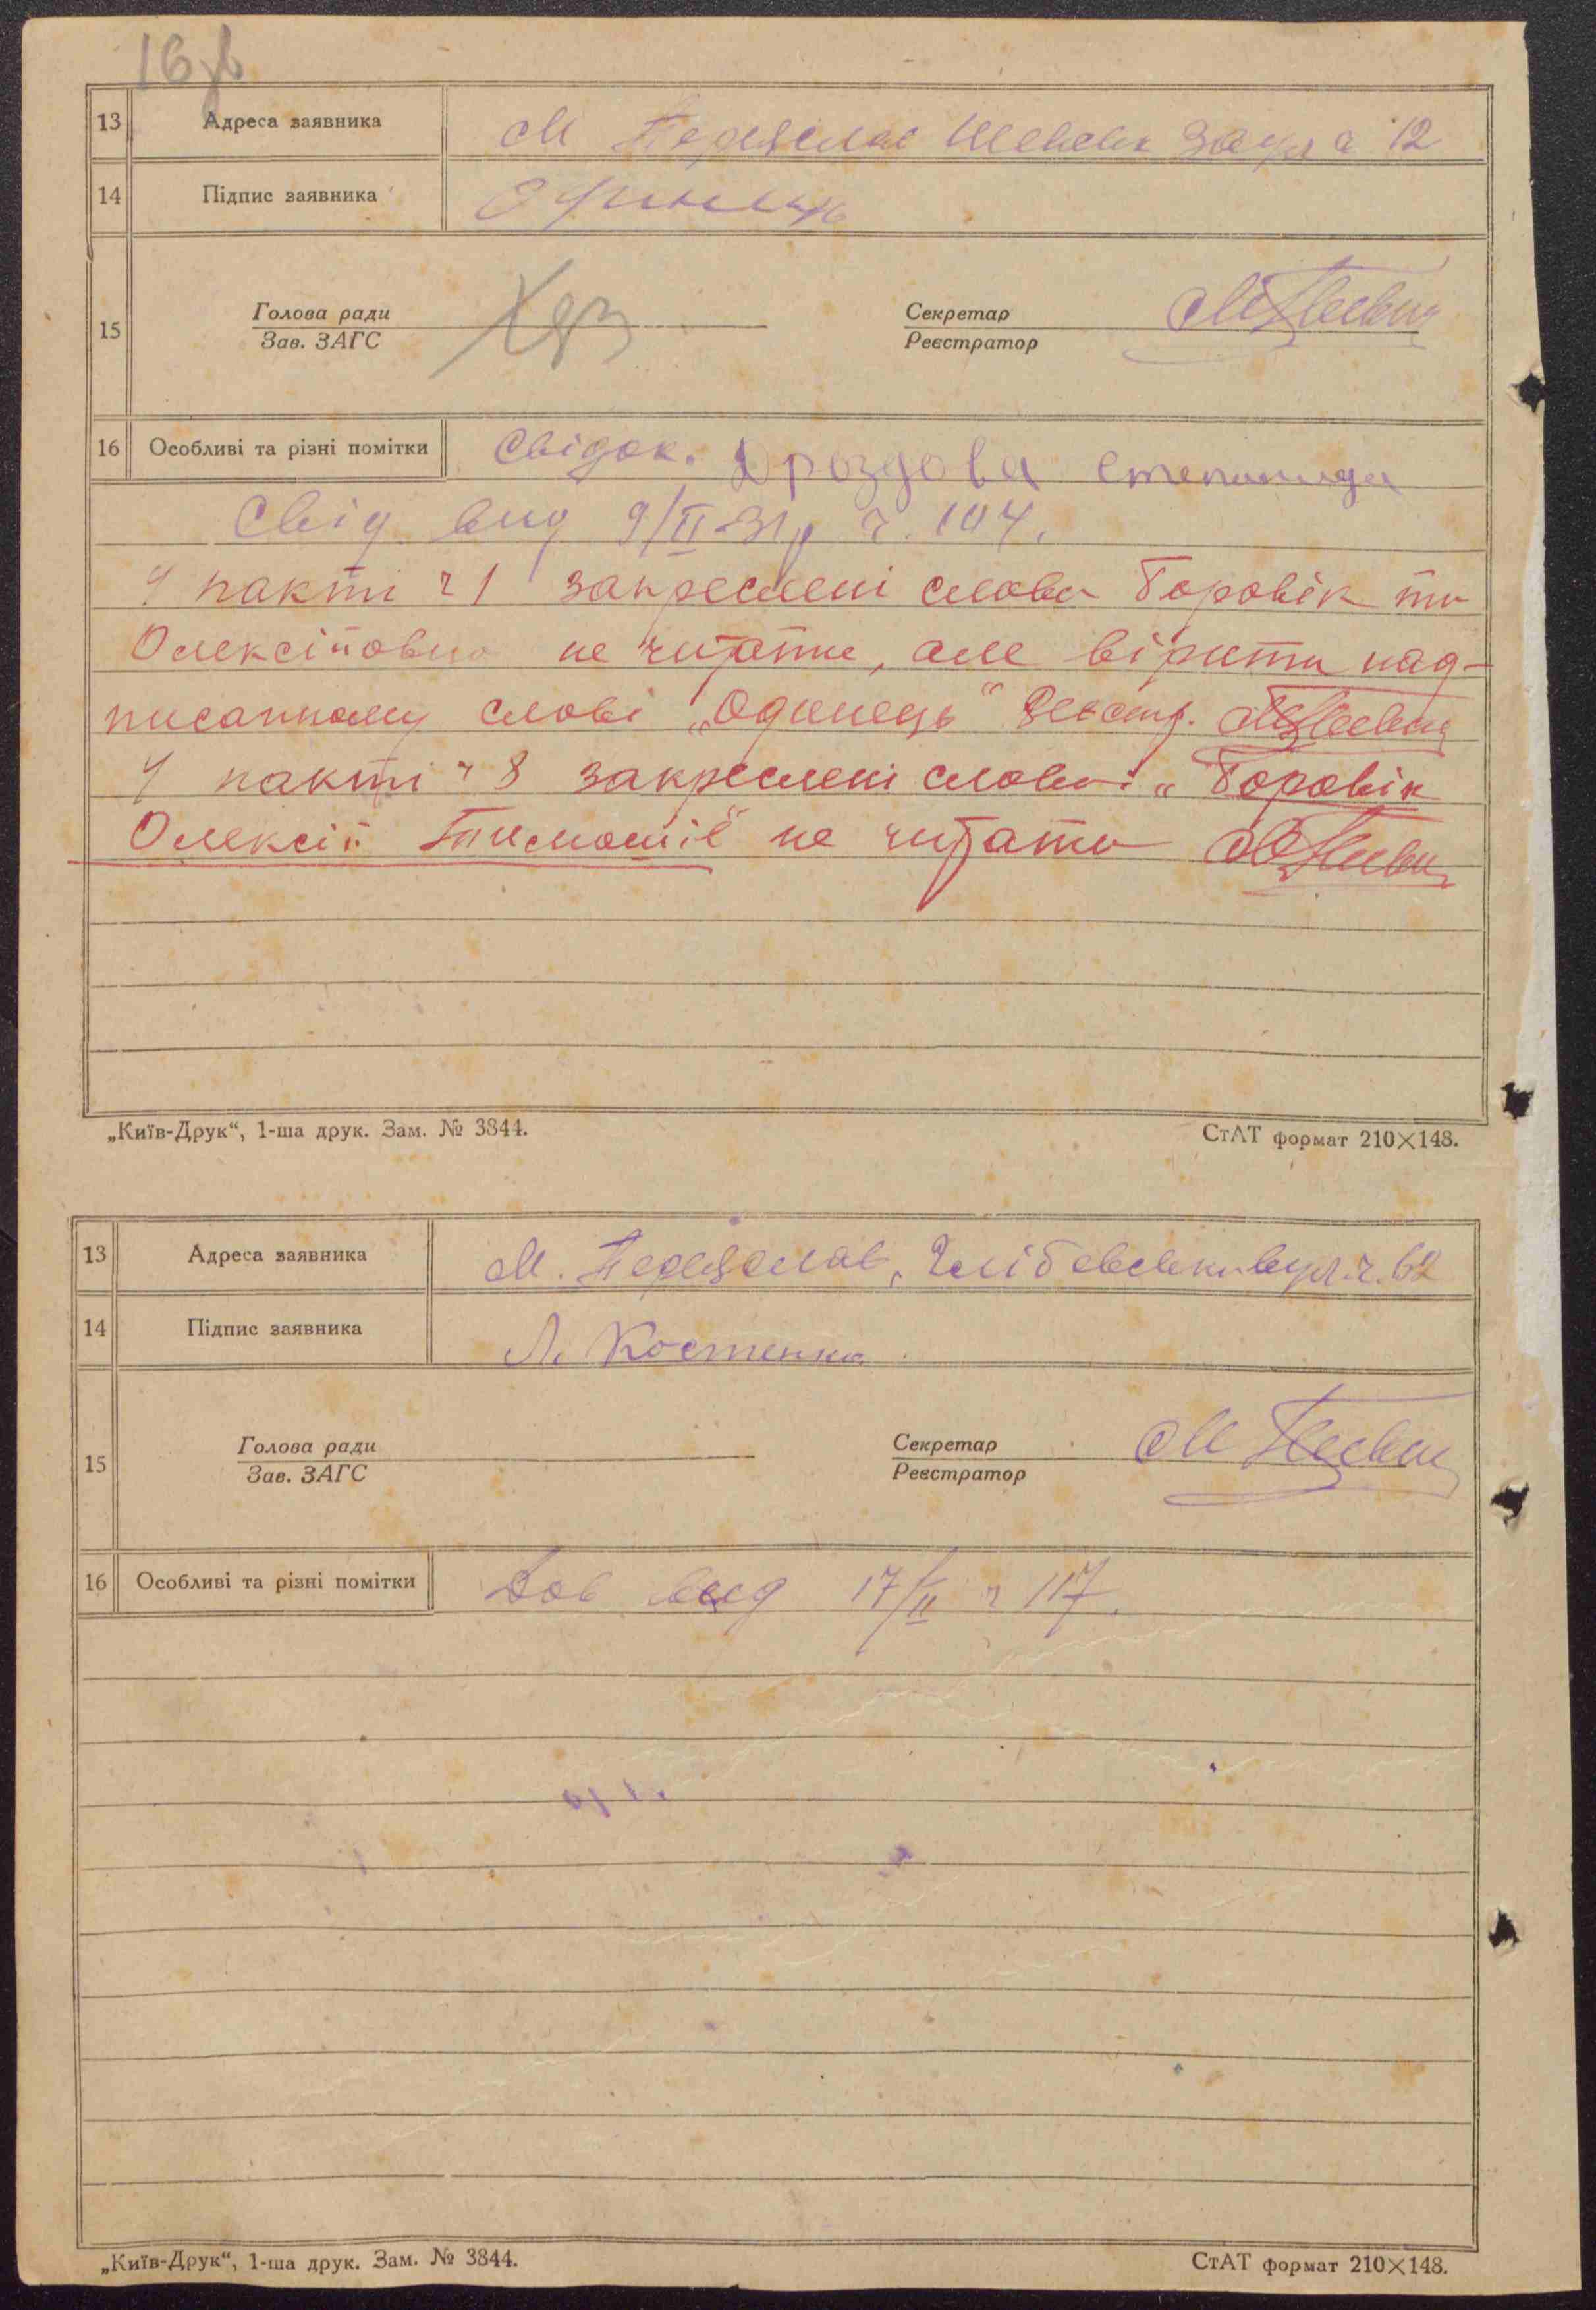 16 зв
13 Адреса заявника М Переяслав 12
14 Підпис заявника
15 Голова ради Секретар
Зав. ЗАГС Реєстратор
16 Особливі та різні помітки Свідок. Дроздова Степанида
Свід. вид 9/II-31р ч. 104.
У пакті ч 1 закреслені слова Боровік та
Олексіївна не читати, але вірити над-
писанному слові „Одинець“ Реєстр.
У пакті ч 8 закреслені слова: „Боровік
Олексій Тимошів“ не читати
„Київ-Друк“, 1-ша друк. Зам. № 3844. СтАТ формат 210×148.
13 Адреса заявника М. Переяслав, ч. 62
14 Підпис заявника Л. Костенко
15 Голова ради Секретар
Зав. ЗАГС Реєстратор
16 Особливі та різні помітки Дов вид 17/II ч 117.
„Київ-Друк“, 1-ша друк. Зам. № 3844. СтАТ формат 210×148.